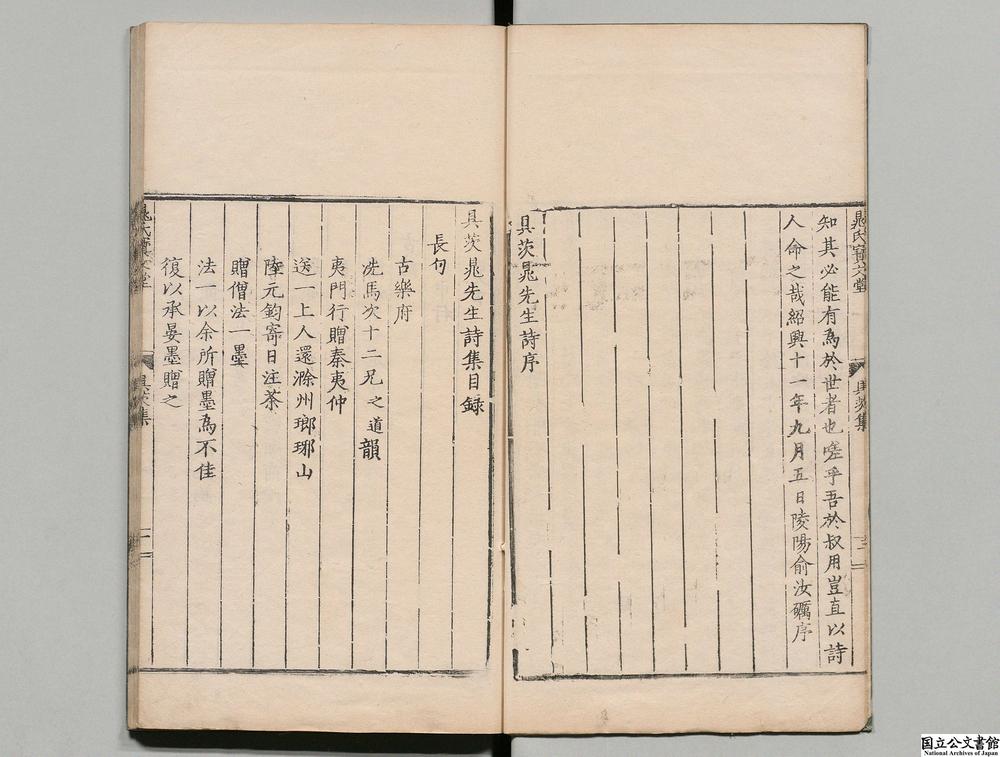 晁氏寶文堂
具茨集
三
知其必能有為於世者也嗟乎吾於叔用豈直以詩
人命之哉紹興十一年九月五日陵陽俞汝礪序
具茨晁先生詩序
具茨晁先生詩集目録
長句
古樂府
冼馬次十二兄之道韻
夷門行贈秦夷仲
送一上人還滁州瑯琊山
陸元鈞寄日注茶
贈僧法一墨
法一以余所贈墨為不佳
復以承晏墨贈之
晁氏寶文堂
具茨集
一
国立公文書館
National Archives of Japan